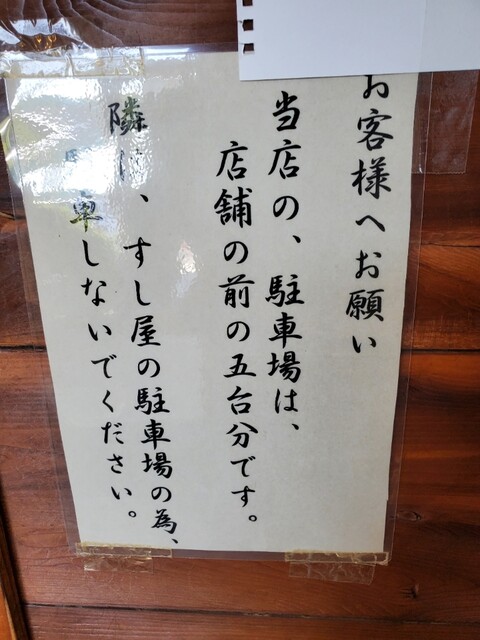 お客様へお願い
当店の、駐車場は、
店舗の前の五台分です。
隣は、すし屋の駐車場の為、
車しないでください。